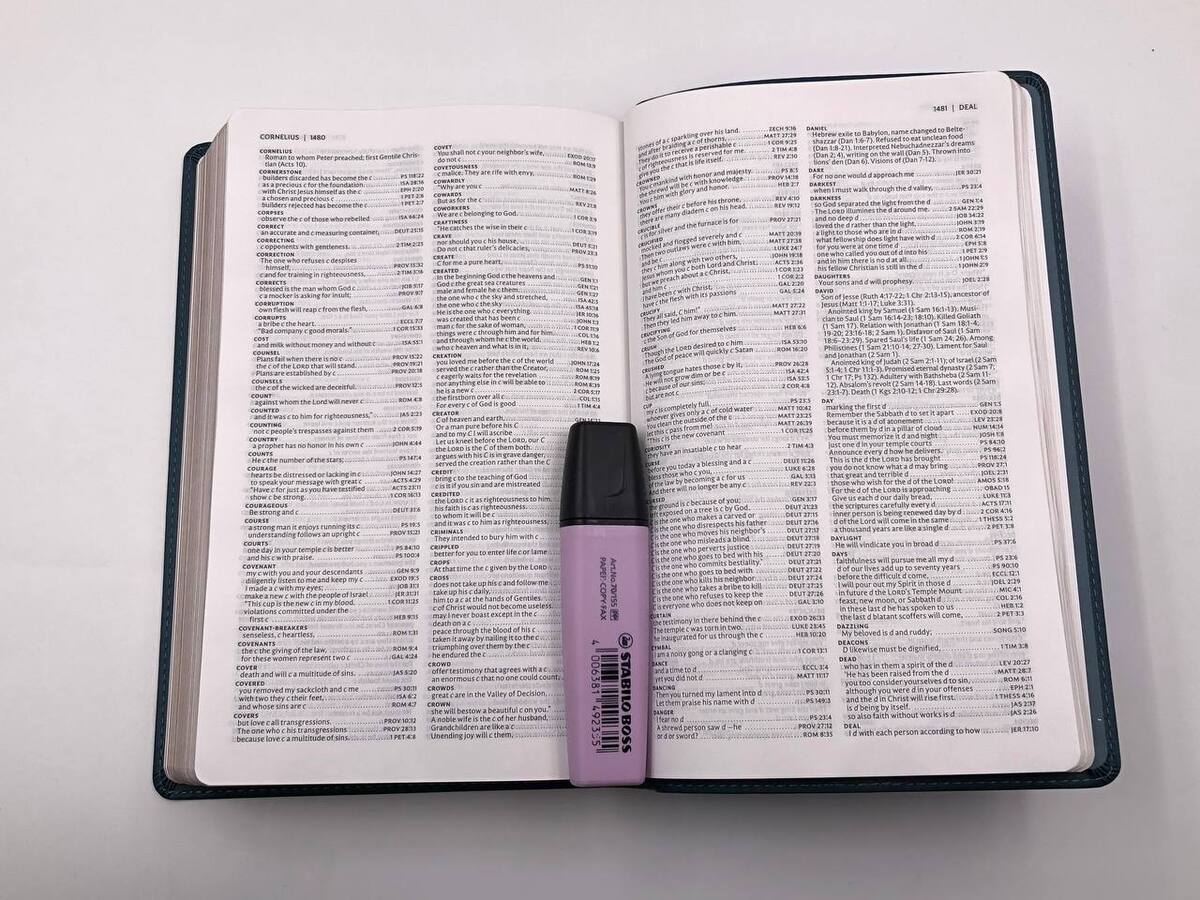 CORNELIUS | 1480
CORNELIUS
Roman to whom Peter preached; first Gentile Chris-
tian (Acts 10).
CORNERSTONE
builders discarded has become the c PS 118:22
as a precious c for the foundation. ISA 28:16
with Christ Jesus himself as the c EPH 2:20
a chosen and precious c 1 PET 2:6
builders rejected has become the c 1 PET 2:7
CORPSES
observe the c of those who rebelled ISA 66:24
CORRECT
an accurate and c measuring container, DEUT 25:15
CORRECTING
c opponents with gentleness. 2 TIM 2:25
CORRECTION
The one who refuses c despises
himself, PROV 15:32
c and for training in righteousness, 2 TIM 3:16
CORRECTS
blessed is the man whom God c JOB 5:17
c a mocker is asking for insult; PROV 9:7
CORRUPTION
own flesh will reap c from the flesh, GAL 6:8
CORRUPTS
a bribe c the heart. ECCL 7:7
"Bad company c good morals." 1 COR 15:33
COST
and milk without money and without c ISA 55:1
COUNSEL
Plans fail when there is no c PROV 15:22
the c of the LORD that will stand. PROV 19:21
Plans are established by c PROV 20:18
COUNSELS
the c of the wicked are deceitful. PROV 12:5
COUNT
against whom the Lord will never c ROM 4:8
COUNTED
and it was c to him for righteousness," JAS 2:23
COUNTING
not c people's trespasses against them 2 COR 5:19
COUNTRY
a prophet has no honor in his own c JOHN 4:44
COUNTS
He c the number of the stars; PS 147:4
COURAGE
hearts be distressed or lacking in c JOHN 14:27
to speak your message with great c ACTS 4:29
"Have c for just as you have testified ACTS 23:11
show c be strong. 1 COR 16:13
COURAGEOUS
Be strong and c DEUT 31:6
COURSE
a strong man it enjoys running its c PS 19:5
understanding follows an upright c PROV 15:21
COURTS
one day in your temple c is better PS 84:10
and his c with praise. PS 100:4
COVENANT
my c with you and your descendants GEN 9:9
diligently listen to me and keep my c EXOD 19:5
I made a c with my eyes; JOB 31:1
make a new c with the people of Israel JER 31:31
"This cup is the new c in my blood. 1 COR 11:25
violations committed under the
first c HEB 9:15
COVENANT-BREAKERS
senseless, c heartless, ROM 1:31
COVENANTS
the c the giving of the law, ROM 9:4
for these women represent two c GAL 4:24
COVER
death and will c a multitude of sins. JAS 5:20
COVERED
you removed my sackcloth and c me PS 30:11
with two they c their feet, ISA 6:2
and whose sins are c ROM 4:7
COVERS
but love c all transgressions. PROV 10:12
The one who c his transgressions PROV 28:13
because love c a multitude of sins. 1 PET 4:8
COVET
You shall not c your neighbor's wife, EXOD 20:17
do not c ROM 13:9
COVETOUSNESS
c malice; They are rife with envy, ROM 1:29
COWARDLY
"Why are you c MATT 8:26
COWARDS
But as for the c REV 21:8
COWORKERS
We are c belonging to God. 1 COR 3:9
CRAFTINESS
"He catches the wise in their c 1 COR 3:19
CRAVE
nor should you c his house, DEUT 5:21
Do not c that ruler's delicacies, PROV 23:3
CREATE
C for me a pure heart, PS 51:10
CREATED
In the beginning God c the heavens and GEN 1:1
God c the great sea creatures GEN 1:21
male and female he c them. GEN 1:27
the one who c the sky and stretched, ISA 42:5
the one who c the sky ISA 45:18
He is the one who c everything. JER 10:16
was created that has been c JOHN 1:3
man c for the sake of woman, 1 COR 11:9
things were c through him and for him. COL 1:16
and through whom he c the world. HEB 1:2
who c heaven and what is in it, REV 10:6
CREATION
you loved me before the c of the world JOHN 17:24
served the c rather than the Creator, ROM 1:25
c eagerly waits for the revelation ROM 8:19
nor anything else in c will be able to ROM 8:39
he is a new c 2 COR 5:17
the firstborn over all c COL 1:15
For every c of God is good 1 TIM 4:4
CREATOR
C of heaven and earth.
Or a man pure before his C
and to my C I will ascribe
Let us kneel before the LORD, our C
the LORD is the C of them both.
argues with his C is in grave danger,
served the creation rather than the C
CREDIT
bring c to the teaching of God
c is it if you sin and are mistreated
CREDITED
the LORD c it as righteousness to him.
his faith is c as righteousness.
to whom it will be c
and it was c to him as righteousness
CRIMINALS
They intended to bury him with c
CRIPPLED
better for you to enter life c or lame
CROPS
At that time the c given by the LORD
CROSS
does not take up his c and follow me
take up his c daily,
him to a c at the hands of Gentiles.
c of Christ would not become useless.
may I never boast except in the c
death on a c
peace through the blood of his c
taken it away by nailing it to the c
triumphing over them by the c
he endured the c
CROWD
offer testimony that agrees with a c
an enormous c that no one could count,
CROWDS
great c are in the Valley of Decision,
CROWN
she will bestow a beautiful c on you."
A noble wife is the c of her husband,
Grandchildren are like a c
Unending joy will c them,
Art.No.70/155
PAPER·COPY·FAX
STABILO BOSS
4 006381 492355
1481 | DEAL
stones of a c sparkling over his land. ZECH 9:16
and after braiding a c of thorns, MATT 27:29
They do it to receive a perishable c 1 COR 9:25
c of righteousness is reserved for me. 2 TIM 4:8
give you the c that is life itself. REV 2:10
CROWNED
you c mankind with honor and majesty. PS 8:5
the shrewd will be c with knowledge. PROV 14:18
You c him with glory and honor. HEB 2:7
CROWNS
they offer their c before his throne, REV 4:10
there are many diadem c on his head. REV 19:12
CRUCIBLE
c is for silver and the furnace is for PROV 27:21
CRUCIFIED
mocked and flogged severely and c MATT 20:19
Then two outlaws were c with him, MATT 27:38
LUKE 24:7
they c him along with two others, JOHN 19:18
Jesus whom you c both Lord and Christ. ACTS 2:36
but we preach about a c Christ, 1 COR 1:23
and him c 1 COR 2:2
I have been c with Christ; GAL 2:20
have c the flesh with its passions GAL 5:24
CRUCIFY
They all said, C him!" MATT 27:22
Then they led him away to c MATT 27:31
CRUCIFYING
c the Son of God for themselves HEB 6:6
CRUSH
Though the LORD desired to c him ISA 53:10
The God of peace will quickly c Satan ROM 16:20
CRUSHED
A lying tongue hates those c by it, PROV 26:28
He will not grow dim or be c ISA 42:4
c because of our sins; ISA 53:5
but are not c 2 COR 4:8
CUP
my c is completely full. PS 23:5
whoever gives only a c of cold water MATT 10:42
You clean the outside of the c MATT 23:25
let this c pass from me! MATT 26:39
"This c is the new covenant 1 COR 11:25
CURIOSITY
they have an insatiable c to hear 2 TIM 4:3
before you today a blessing and a c DEUT 11:26
bless those who c you, LUKE 6:28
of the law by becoming a c for us GAL 3:13
and there will no longer be any c REV 22:3
ground is c because of you; GEN 3:17
exposed on a tree is c by God. DEUT 21:23
is the one who makes a carved or DEUT 27:15
is the one who disrespects his father DEUT 27:16
is the one who moves his neighbor's DEUT 27:17
is the one who misleads a blind DEUT 27:18
is the one who perverts justice DEUT 27:19
is the one who goes to bed with DEUT 27:20
is the one who commits bestiality." DEUT 27:21
is the one who goes to bed with DEUT 27:22
is the one who kills his neighbor DEUT 27:24
is the one who takes a bribe to kill DEUT 27:25
is the one who refuses to keep the DEUT 27:26
is everyone who does not keep on GAL 3:10
CURTAIN
the testimony in there behind the c EXOD 26:33
The temple c was torn in two. LUKE 23:45
he inaugurated for us through the c HEB 10:20
CYMBAL
I am a noisy gong or a clanging c 1 COR 13:1
DANCE
and a time to d ECCL 3:4
yet you did not d MATT 11:17
DANCING
Then you turned my lament into d PS 30:11
Let them praise his name with d PS 149:3
DANGER
I fear no d PS 23:4
A shrewd person saw d—he PROV 27:12
or d or sword? ROM 8:35
DANIEL
Hebrew exile to Babylon, name changed to Belte-
shazzar (Dan 1:6-7). Refused to eat unclean food
(Dan 1:8-21). Interpreted Nebuchadnezzar's dreams
(Dan 2; 4), writing on the wall (Dan 5). Thrown into
lions' den (Dan 6). Visions of (Dan 7-12).
DARE
For no one would d approach me JER 30:21
DARKEST
when I must walk through the d valley, PS 23:4
DARKNESS
so God separated the light from the d GEN 1:4
The LORD illumines the d around me. 2 SAM 22:29
and no deep d JOB 34:22
loved the d rather than the light, JOHN 3:19
a light to those who are in d ROM 2:19
what fellowship does light have with d 2 COR 6:14
for you were at one time d EPH 5:8
one who called you out of d into his 1 PET 2:9
and in him there is no d at all. 1 JOHN 1:5
his fellow Christian is still in the d 1 JOHN 2:9
DAUGHTERS
Your sons and d will prophesy. JOEL 2:28
DAVID
Son of Jesse (Ruth 4:17-22; 1 Chr 2:13-15), ancestor of
Jesus (Matt 1:1-17; Luke 3:31).
Anointed king by Samuel (1 Sam 16:1-13). Musi-
cian to Saul (1 Sam 16:14-23; 18:10). Killed Goliath
(1 Sam 17). Relation with Jonathan (1 Sam 18:1-4;
19-20; 23:16-18; 2 Sam 1). Disfavor of Saul (1 Sam
18:6–23:29). Spared Saul's life (1 Sam 24; 26). Among
Philistines (1 Sam 21:10-14; 27-30). Lament for Saul
and Jonathan (2 Sam 1).
Anointed king of Judah (2 Sam 2:1-11); of Israel (2 Sam
5:1-4; 1 Chr 11:1-3). Promised eternal dynasty (2 Sam 7;
1 Chr 17; Ps 132). Adultery with Bathsheba (2 Sam 11-
12). Absalom's revolt (2 Sam 14-18). Last words (2 Sam
23:1-7). Death (1 Kgs 2:10-12; 1 Chr 29:28).
DAY
marking the first d GEN 1:5
Remember the Sabbath d to set it apart EXOD 20:8
because it is a d of atonement LEV 23:28
before them by d in a pillar of cloud NUM 14:14
You must memorize it d and night JOSH 1:8
just one d in your temple courts PS 84:10
Announce every d how he delivers. PS 96:2
This is the d the LORD has brought PS 118:24
you do not know what a d may bring PROV 27:1
that great and terrible d JOEL 2:31
those who wish for the d of the LORD! AMOS 5:18
For the d of the LORD is approaching OBAD 15
Give us each d our daily bread, LUKE 11:3
the scriptures carefully every d ACTS 17:11
inner person is being renewed day by d 2 COR 4:16
d of the Lord will come in the same 1 THESS 5:2
a thousand years are like a single d 2 PET 3:8
DAYLIGHT
He will vindicate you in broad d PS 37:6
DAYS
faithfulness will pursue me all my d PS 23:6
d of our lives add up to seventy years PS 90:10
before the difficult d come, ECCL 12:1
I will pour out my Spirit in those d JOEL 2:29
in future d the LORD's Temple Mount MIC 4:1
feast, new moon, or Sabbath d COL 2:16
in these last d he has spoken to us HEB 1:2
the last d blatant scoffers will come, 2 PET 3:3
DAZZLING
My beloved is d and ruddy; SONG 5:10
DEACONS
D likewise must be dignified, 1 TIM 3:8
DEAD
who has in them a spirit of the d LEV 20:27
"He has been raised from the d MATT 28:7
you too consider yourselves d to sin, ROM 6:11
although you were d in your offenses EPH 2:1
and the d in Christ will rise first. 1 THESS 4:16
is d being by itself. JAS 2:17
so also faith without works is d JAS 2:26
DEAL
I d with each person according to how JER 17:10